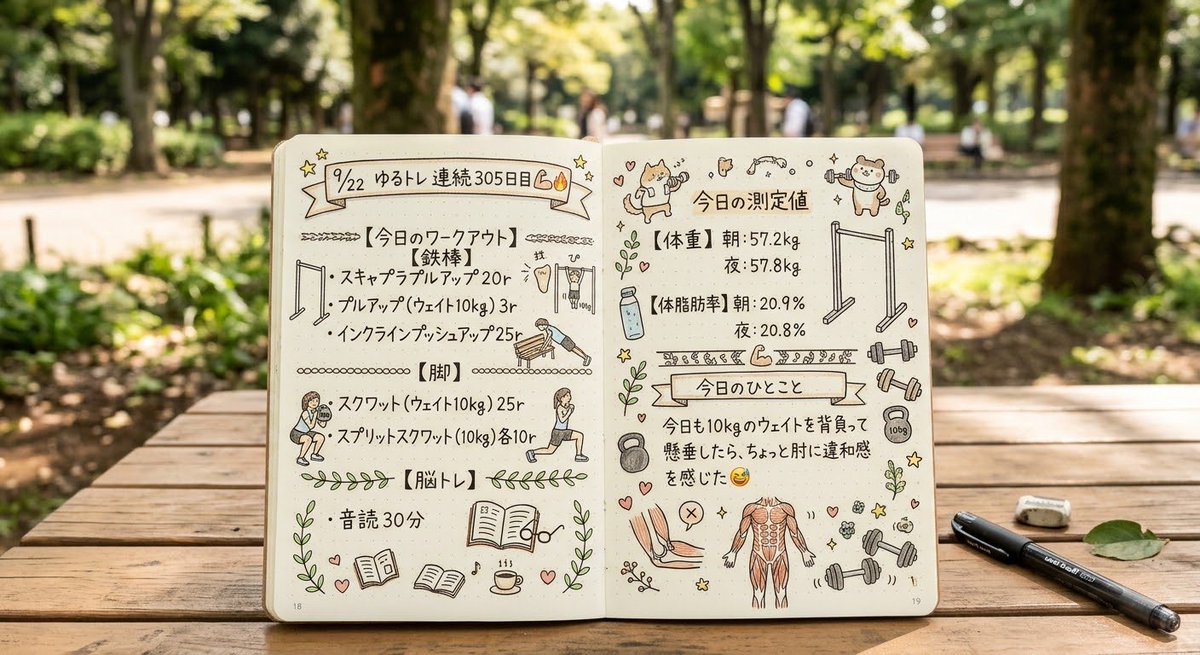 9/22 ゆるトレ 連続305日目💪🔥
【今日のワークアウト】
【鉄棒】
・スキャプラプルアップ 20r
・プルアップ(ウェイト10kg) 3r
・インクラインプッシュアップ 25r
【脚】
・スクワット(ウェイト10kg) 25r
・スプリットスクワット(10kg)各10r
【脳トレ】
・音読 30分
18
今日の測定値
【体重】朝:57.2kg
夜:57.8kg
【体脂肪率】朝:20.9%
夜:20.8%
今日のひとこと
今日も10kgのウェイトを背負って
懸垂したら、ちょっと肘に違和感
を感じた😅
19